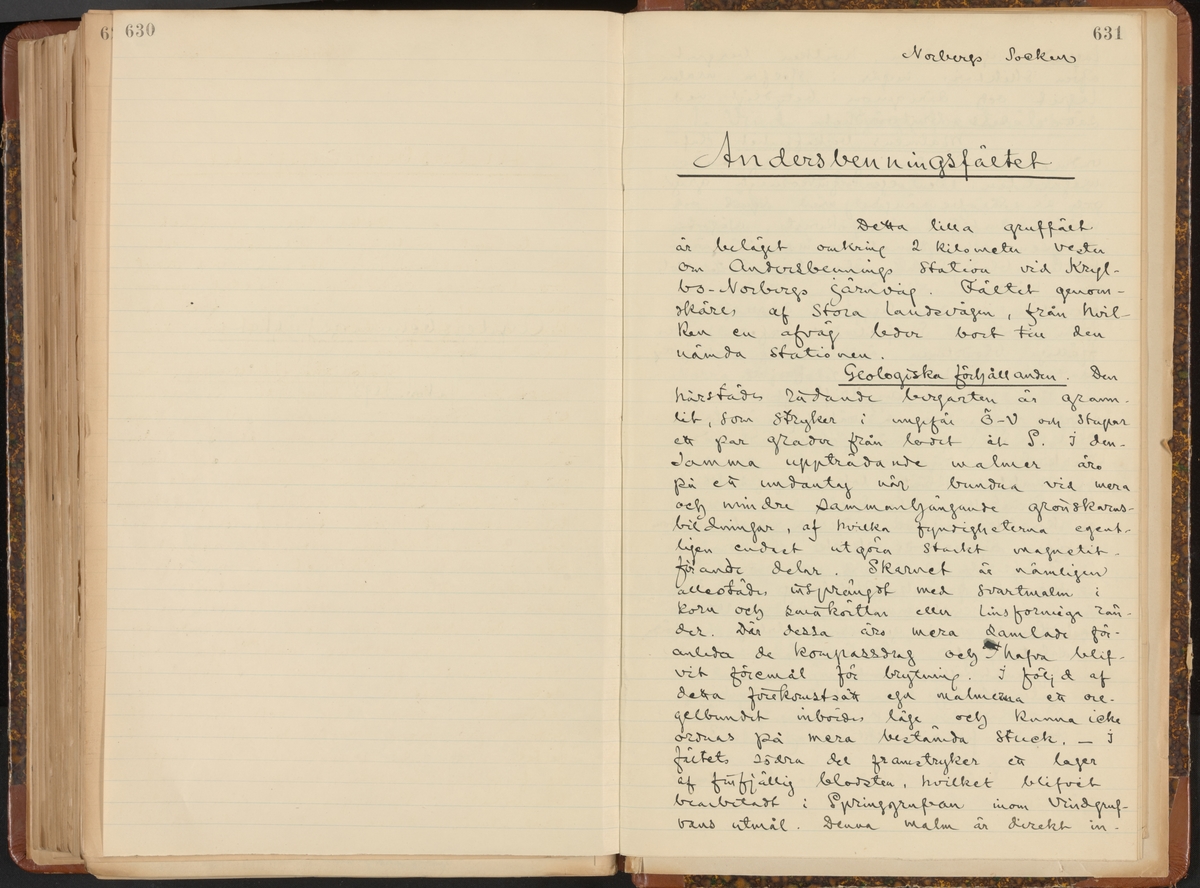 630
631
Norbergs Socken
Andersbenningsfältet
Detta lilla gruffält
är beläget omkring 2 kilometer vester
om Andersbennings station vid Kryl-
bo-Norbergs järnväg. Fältet genom-
skäres af stora landsvägen, från hvil-
ken en afväg leder bort till den
nämda stationen.
Geologiska förhållanden. Den
härstädes rådande bergarten är granu-
lit, som stryker i ungefär Ö-V och stupar
ett par grader från lodet åt S. I den-
samma uppträdande malmer äro
på ett undantag när bundna vid mera
och mindre sammanhängande grönskarns-
bildningar, af hvilka fyndigheterna egent-
ligen endast utgöra starkt magnetit-
förande delar. Skarnet är nämligen
allestädes insprängdt med svartmalm i
korn och småkörtlar eller linsformiga rän-
der. Där dessa äro mera samlade för-
anleda de kompassdrag och hafva blif-
vit föremål för brytning. I följd af
detta förekomstsätt ega malmerna ett ore-
gelbundet inbördes läge och kunna icke
ordnas på mera bestämda streck. — I
fältets södra del framstryker ett lager
af finfjällig blodsten, hvilket blifvit
bearbetadt i Springgrufvan inom Vindgruf-
vans utmål. Denna malm är direkt in-